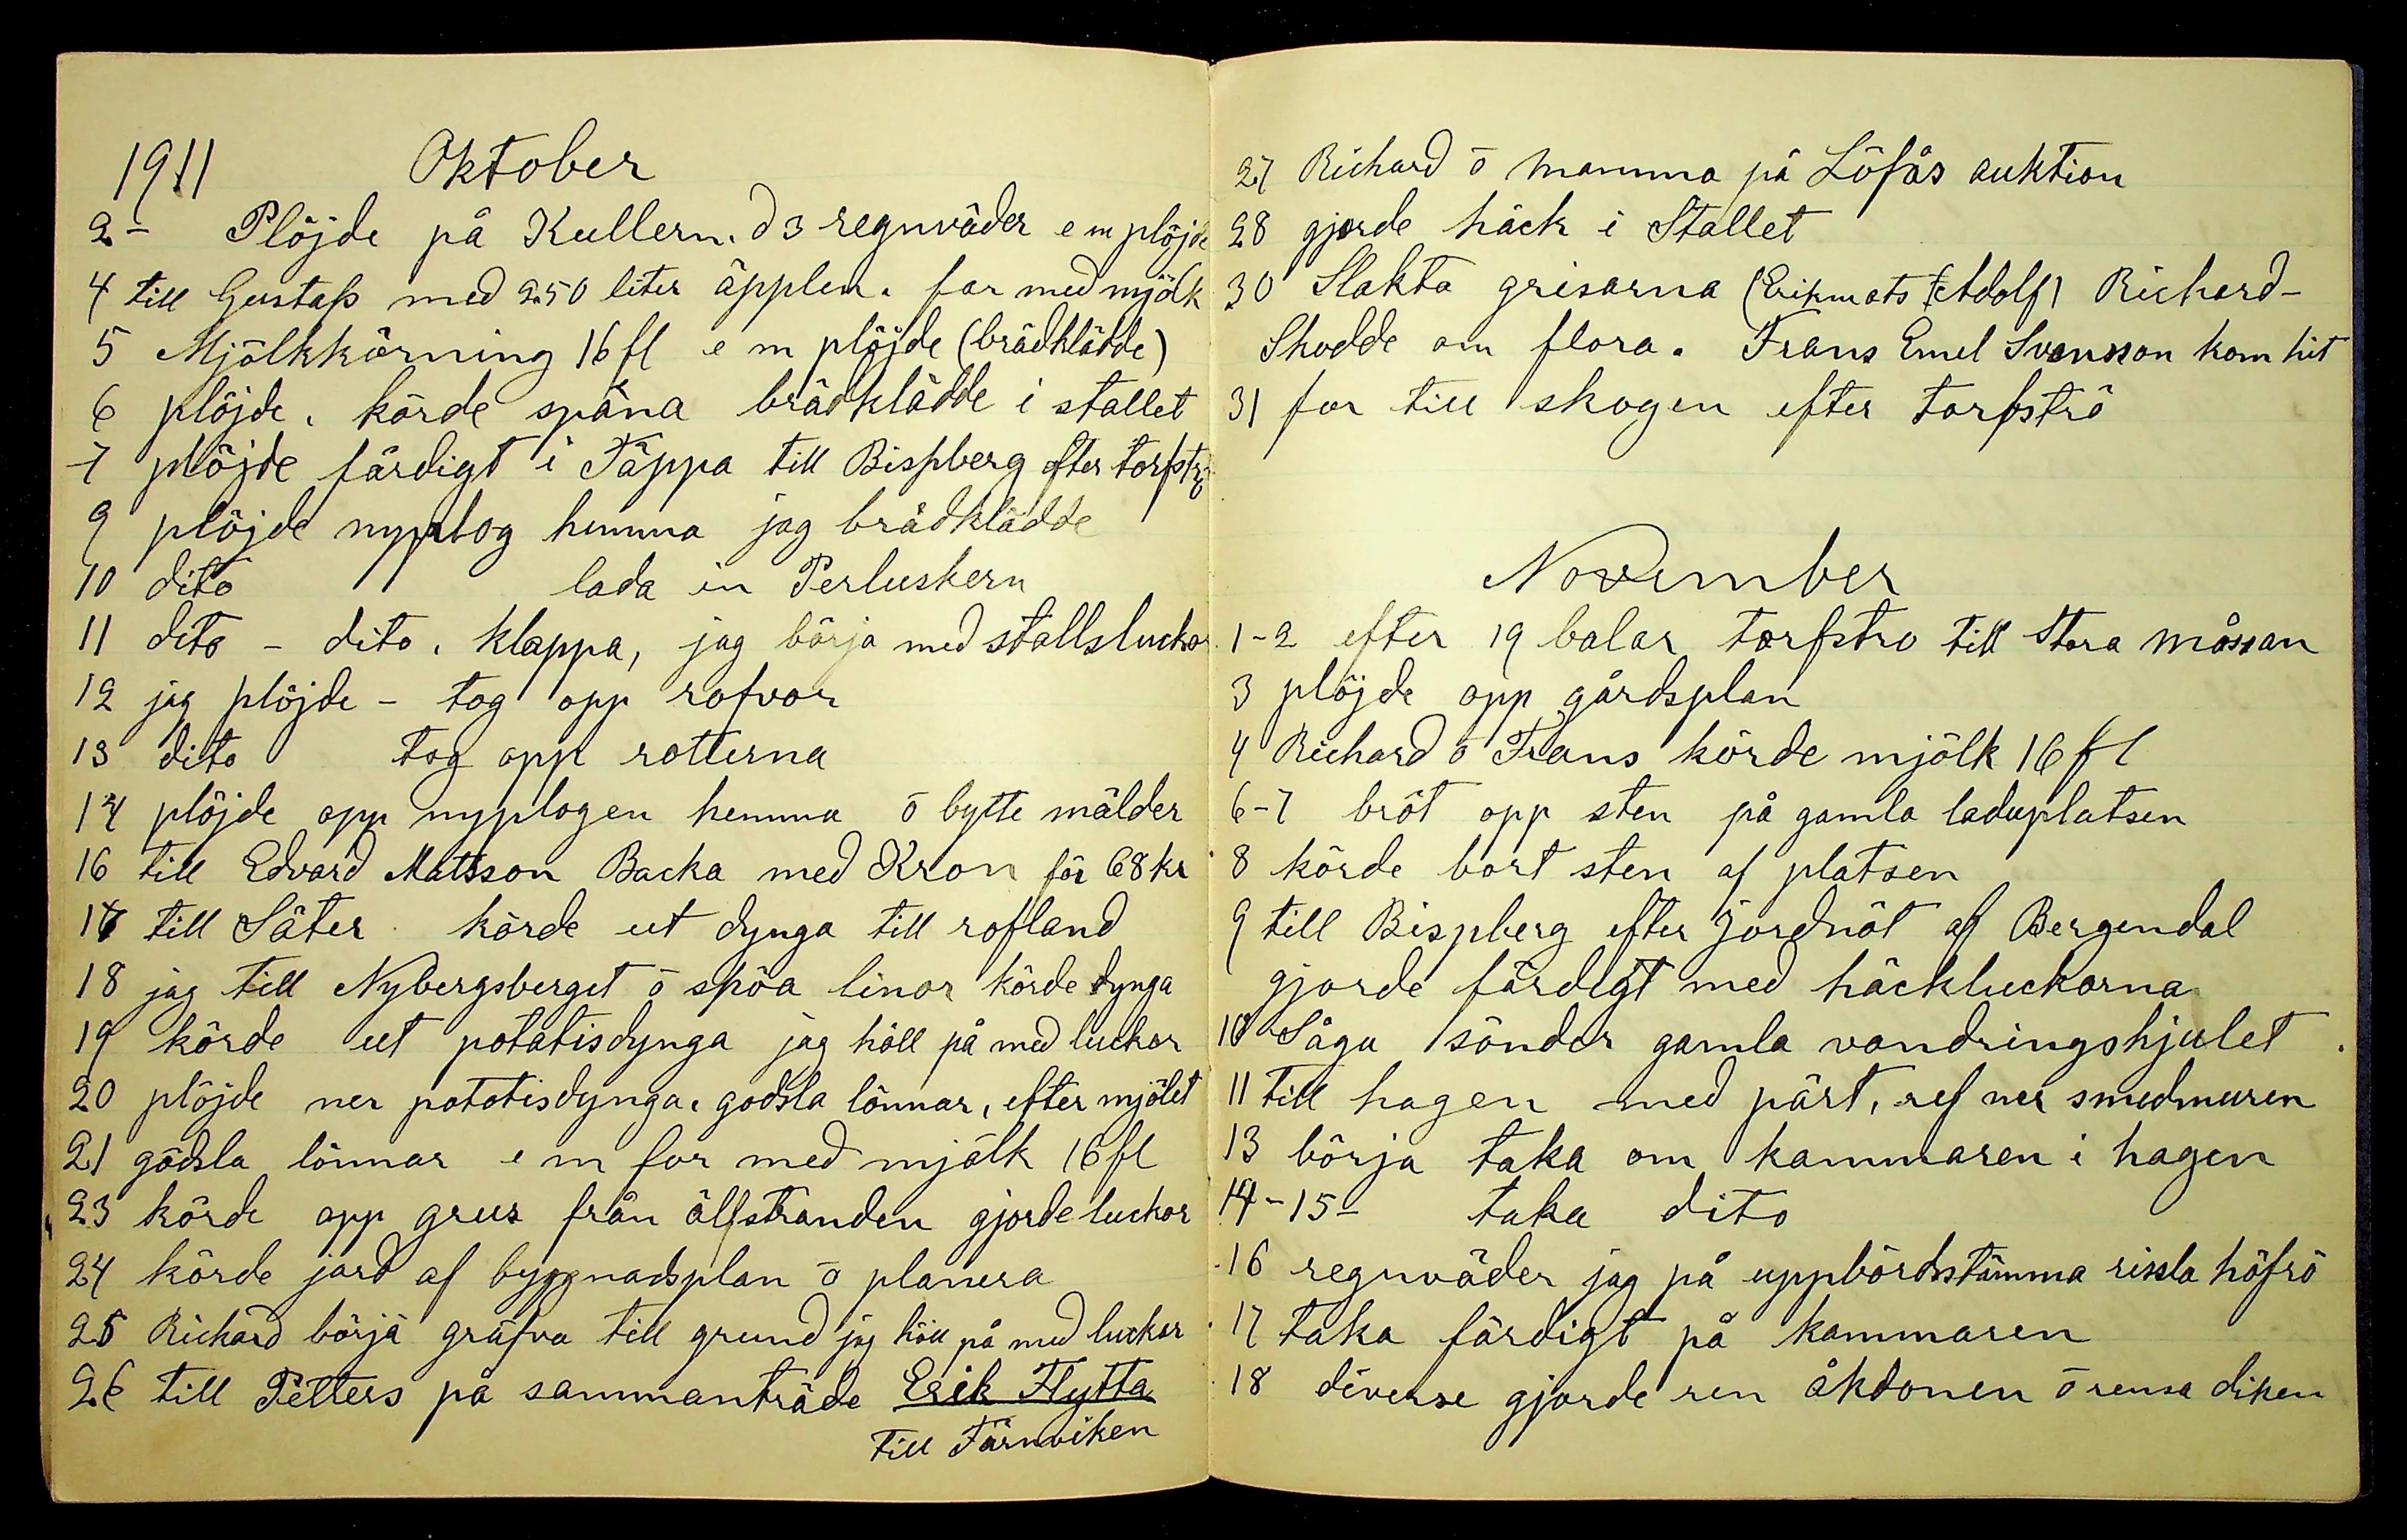 1911 Oktober
2- Plöjde på Kullern. d 3 regnväder e m plöjde
4 till Gustafs med 2.50 liter äpplen. for med mjölk
5 Mjölkkörning 16 fl e m plöjde (brädklädde)
6 plöjde. körde spåna brädklädde i stallet
7 plöjde färdigt i Täppa till Bispberg efter torfströ
9 plöjde nyplog hemma jag brädklädde
10 dito lada in Perluskern
11 dito - dito. klappa, jag börja med stallsluckor
12 jag plöjde - tog opp rofvor
13 dito tog opp rötterna
14 plöjde opp nyplogen hemma ō bytte mälder
16 till Edvard Mattsson Backa med Kron för 68 kr
17 till Säter. körde ut dynga till rofland
18 jag till Nybergsberget ō spöa linor körde dynga
19 körde ut potatisdynga jag höll på med luckor
20 plöjde ner potatisdynga. gödsla lönnar, efter mjölet
21 gödsla lönnar e m for med mjölk 16 fl
23 körde opp grus från älfstranden gjorde luckor
24 körde jord af byggnadsplan ō planera
25 Richard börja gräfva till grund jag höll på med luckor
26 till Petters på sammanträde Erik Flytta
till Färnviken
27 Richard ō Mamma på Löfås auktion
28 gjorde häck i Stallet
30 Slakta grisarna (Erikmats Adolf) Richard-
Skodde om flora. Frans Emel Svensson kom hit
31 for till skogen efter torfströ
November
1-2 efter 19 balar torfströ till Stora mossan
3 plöjde opp gårdsplan
4 Richard ō Frans körde mjölk 16 fl
6-7 bröt opp sten på gamla laduplatsen
8 körde bort sten af platsen
9 till Bispberg efter jordnöt af Bergendal
gjorde färdigt med häckluckorna
10 Såga sönder gamla vandringshjulet
11 till hagen med pärt, ref ner smedmuren
13 börja taka om kammaren i hagen
14-15- taka dito
16 regnväder jag på uppbördsstämma rissla höfrö
17 taka färdigt på kammaren
18 diverse gjorde ren åkdonen ō rensa diken